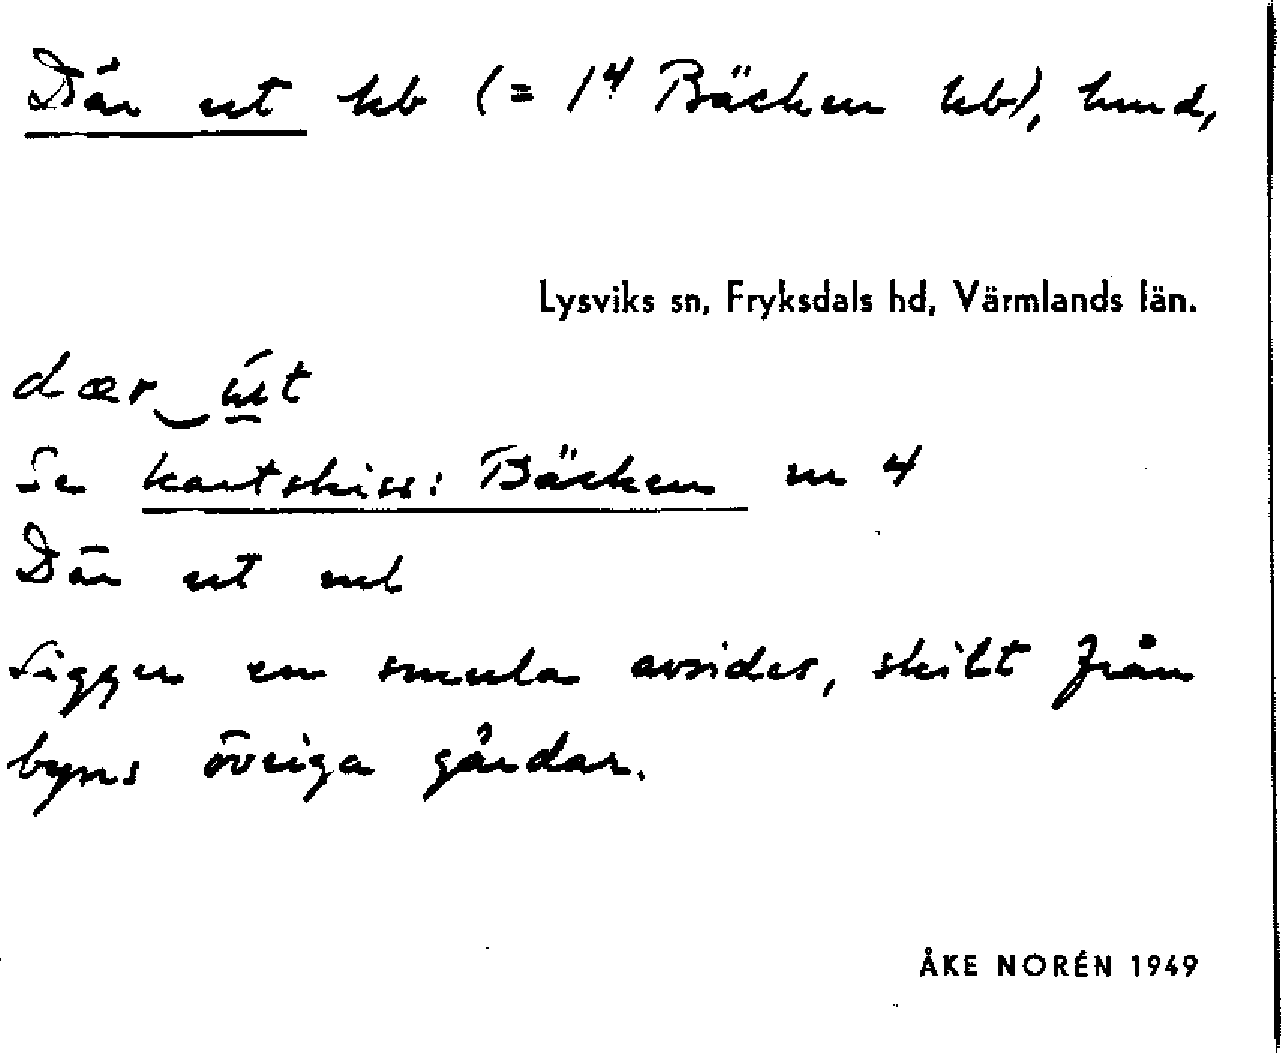 Där ut hb (= 1⁴ Bäcken hb), hmd,
Lysviks sn, Fryksdals hd, Värmlands län.
dær‿út
Se kartskiss: Bäcken nr 4
Där ut
Ligger en smula avsides, skilt från
byns övriga gårdar.
ÅKE NORÉN 1949